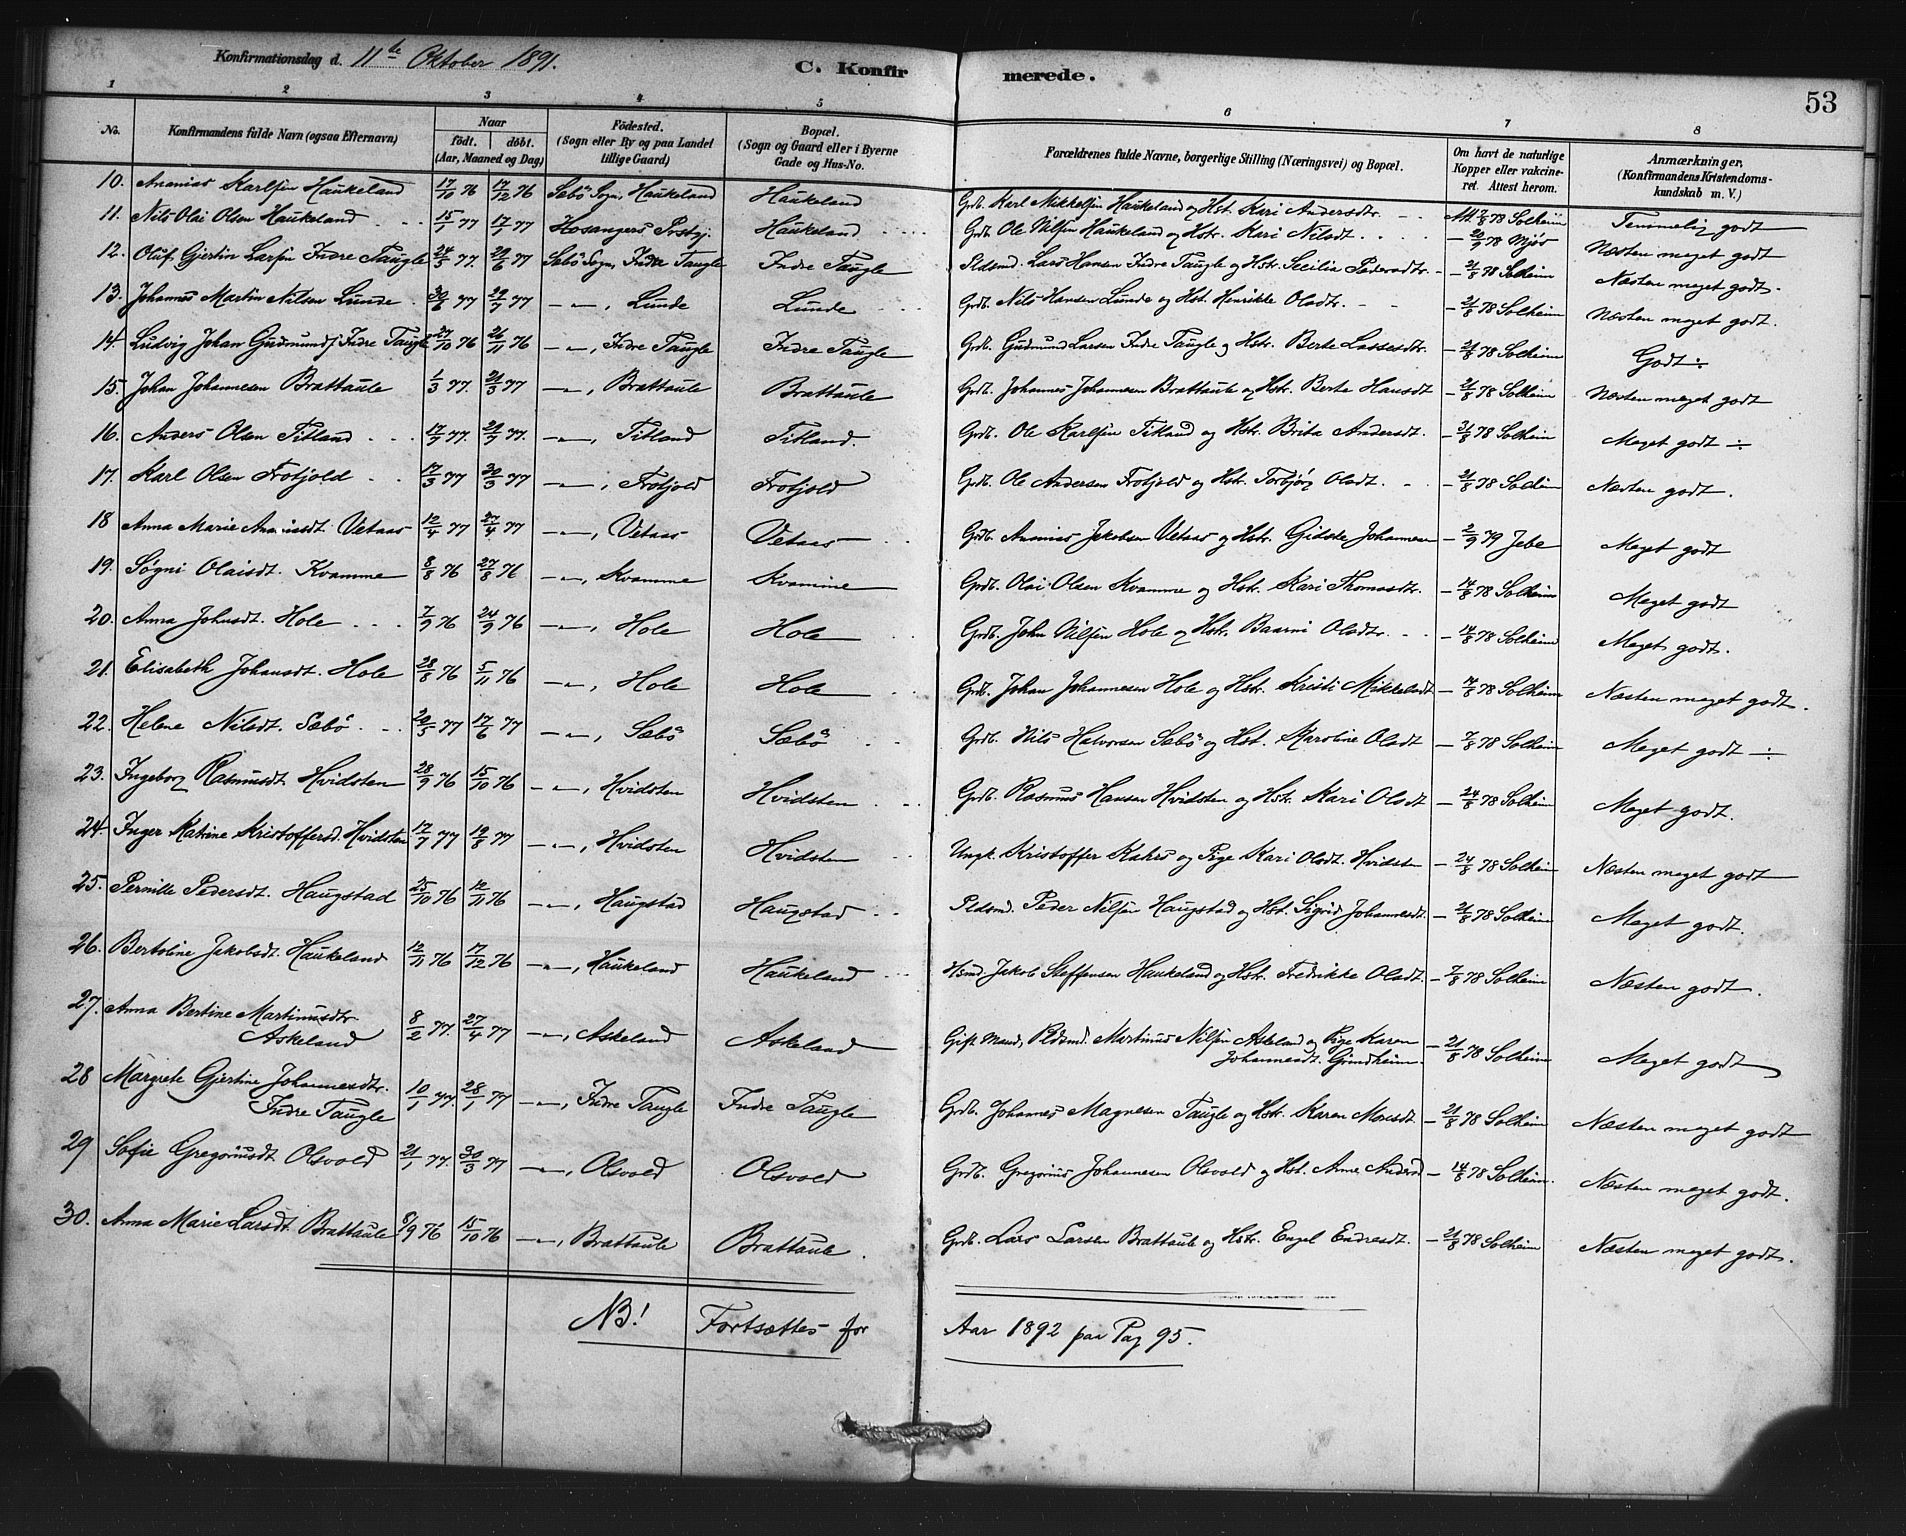 Konfirmationsdag d. 11te Oktober 1891.
C. Konfirmerede.
53
1 2 3 4 5 6 7 8
No. | Konfirmandens fulde Navn (ogsaa Efternavn) | Naar födt. döbt. (Aar, Maaned og Dag) | Födested. (Sogn eller By og paa Landet tillige Gaard) | Bopæl. (Sogn og Gaard eller i Byerne Gade og Hus-No. | Forældrenes fulde Navne, borgerlige Stilling (Næringsvei) og Bopæl. | Om havt de naturlige Kopper eller vakcineret. Attest herom. | Anmærkninger. (Konfirmandens Kristendomskundskab m. V.)
10. Ananias Karlsen Haukeland 17/10 76 17/12 76 Sæbö Sogn, Haukeland Haukeland Grdb. Karl Mikkelsen Haukeland og Hst. Kari Andersdtr. 7/8 78 Solheim Temmelig godt
11. Nils Olai Olsen Haukeland 15/1 77 17/1 77 Hosangers Prstgj. Haukeland Grdb. Ole Nilsen Haukeland og Hstr. Kari Nilsdt. – 20/9 78 Mjös Næsten meget godt
12. Oluf Gjertin Larsen Indre Taugle 24/5 77. 20/6 77 Sæbö Sogn, Indre Taugle Indre Taugle Pldsmd. Lars Hansen Indre Taugle og Hstr. Secilia Pedersdtr. – 21/8 78 Solheim Næsten meget godt.
13. Johannes Martin Nilsen Lunde 30/6 77 29/7 77 –"–, Lunde Lunde Grdb. Nils Hansen Lunde og Hst. Henrikke Olsdtr. – 21/8 78 Solheim Næsten meget godt.
14. Ludvig Johan Gudmunds. Indre Taugle 27/10 76 26/11 76 –"–, Indre Taugle Indre Taugle Grdb. Gudmund Larsen Indre Taugle og Hstr. Berte Lassesdtr. – 21/8 78 Solheim Godt ÷
15. Johan Johannesen Brattaule 1/3 77. 21/3 77 –"–, Brattaule Brattaule Grdb. Johannes Johannesen Brattaule og Hst. Berta Hansdt – 21/8 78 Solheim Næsten meget godt
16. Anders Olsen Titland 17/7 77. 29/7 77. –"–, Titland Titland Grdb. Ole Karlsen Titland og Hstr. Brita Andersdt. – 31/8 78 Solheim Meget godt ÷
17. Karl Olsen Frotjold 17/3 77 30/3 77 –"–, Frotjold Frotjold Grdb. Ole Andersen Frotjold og Hstr. Torbjörg Olsdt. – 21/8 78 Solheim Næsten godt.
18 Anna Marie Vetaas 12/4 77 27/4 77 –"–, Vetaas Vetaas Grdb. Ananias Jakobsen Vetaas og Hstr. Gidske Johannesen – 2/9 79 Jebe Meget godt
19. Søgni Olaisdt. Kvamme 8/8 76 27/8 76 –"–, Kvamme Kvamme Grdb. Olai Olsen Kvamme og Hstr. Kari Thomasdtr. – 14/8 78 Solheim Meget godt
20. Anna Johnsdt. Hole 7/9 76 24/9 76 –"–, Hole Hole Grdb. John Nilsen Hole og Hstr. Baarni Olsdtr. – 14/8 78 Solheim Meget godt.
21. Elisabeth Johansdt. Hole 28/8 76 5/11 76 –"–, Hole Hole Grdb. Johan Johannesen Hole og Hstr. Kristi Mikkelsdt – 7/8 78 Solheim Næsten meget godt.
22. Helene Nilsdt. Sæbö 20/5 77 17/6 77 –"–, Sæbö Sæbö Grdb. Nils Halvorsen Sæbö og Hst. Karoline Olsdt – 7/8 78 Solheim Meget godt ÷
23. Ingeborg Rasmusdt. Hvidsten 28/9 76 15/10 76 –"–, Hvidsten Hvidsten Grdb. Rasmus Hansen Hvidsten og Hst. Kari Olsdt – 24/8 78 Solheim Meget godt.
24. Inger Katrine Kristoffersd. Hvidsten 17/7 77 19/8 77 –"–, Hvidsten Hvidsten Ungk. Kristoffer Kahrs og Pige Kari Olsdt. Hvidsten – 24/8 78 Solheim Næsten meget godt
25. Pernille Pedersdt. Haugstad 25/10 76 12/11 76 –"–, Haugstad Haugstad Pldsmd. Peder Nilsen Haugstad og Hst. Sigrid Johannesdt. – 21/8 78 Solheim Meget godt.
26. Bertoline Jakobsdt. Haukeland 12/11 76 17/12 76 –"–, Haukeland Haukeland Hsmd. Jakob Steffensen Haukeland og Hstr. Fredrikke Olsdt. – 7/8 78 Solheim Næsten godt.
27. Anna Bertine Martinusdtr. Askeland 8/2 77. 27/4 77 –"–, Askeland Askeland Gift Mand, Pldsmd. Martinus Nilsen Askeland og Pige Karen Johannesdt. Grindheim. – 21/8 78 Solheim Meget godt
28 Margrete Gjertine Johannesdtr. Indre Taugle 10/1 77. 28/1 77 –"–, Indre Taugle Indre Taugle Grdb. Johannes Magnesen Taugle og Hstr. Karen Monsdt. – 21/8 78 Solheim Næsten meget godt
29 Sofie Gregoriusdt Olsvold 21/1 77. 30/3 77 –"–, Olsvold Olsvold Grdb. Gregorius Johannesen Olsvold og Hst. Anne Andersd – 14/8 78 Solheim. Næsten meget godt.
30. Anna Marie Larsdt. Brattaule 8/9 76 15/10 76 –"–, Brattaule Brattaule. Grdb. Lars Larsen Brattaule og Hstr. Engel Endresdt. – 21/8 78 Solheim Næsten meget godt.
NB! Fortsættes for Aar 1892 paa Pag 95.